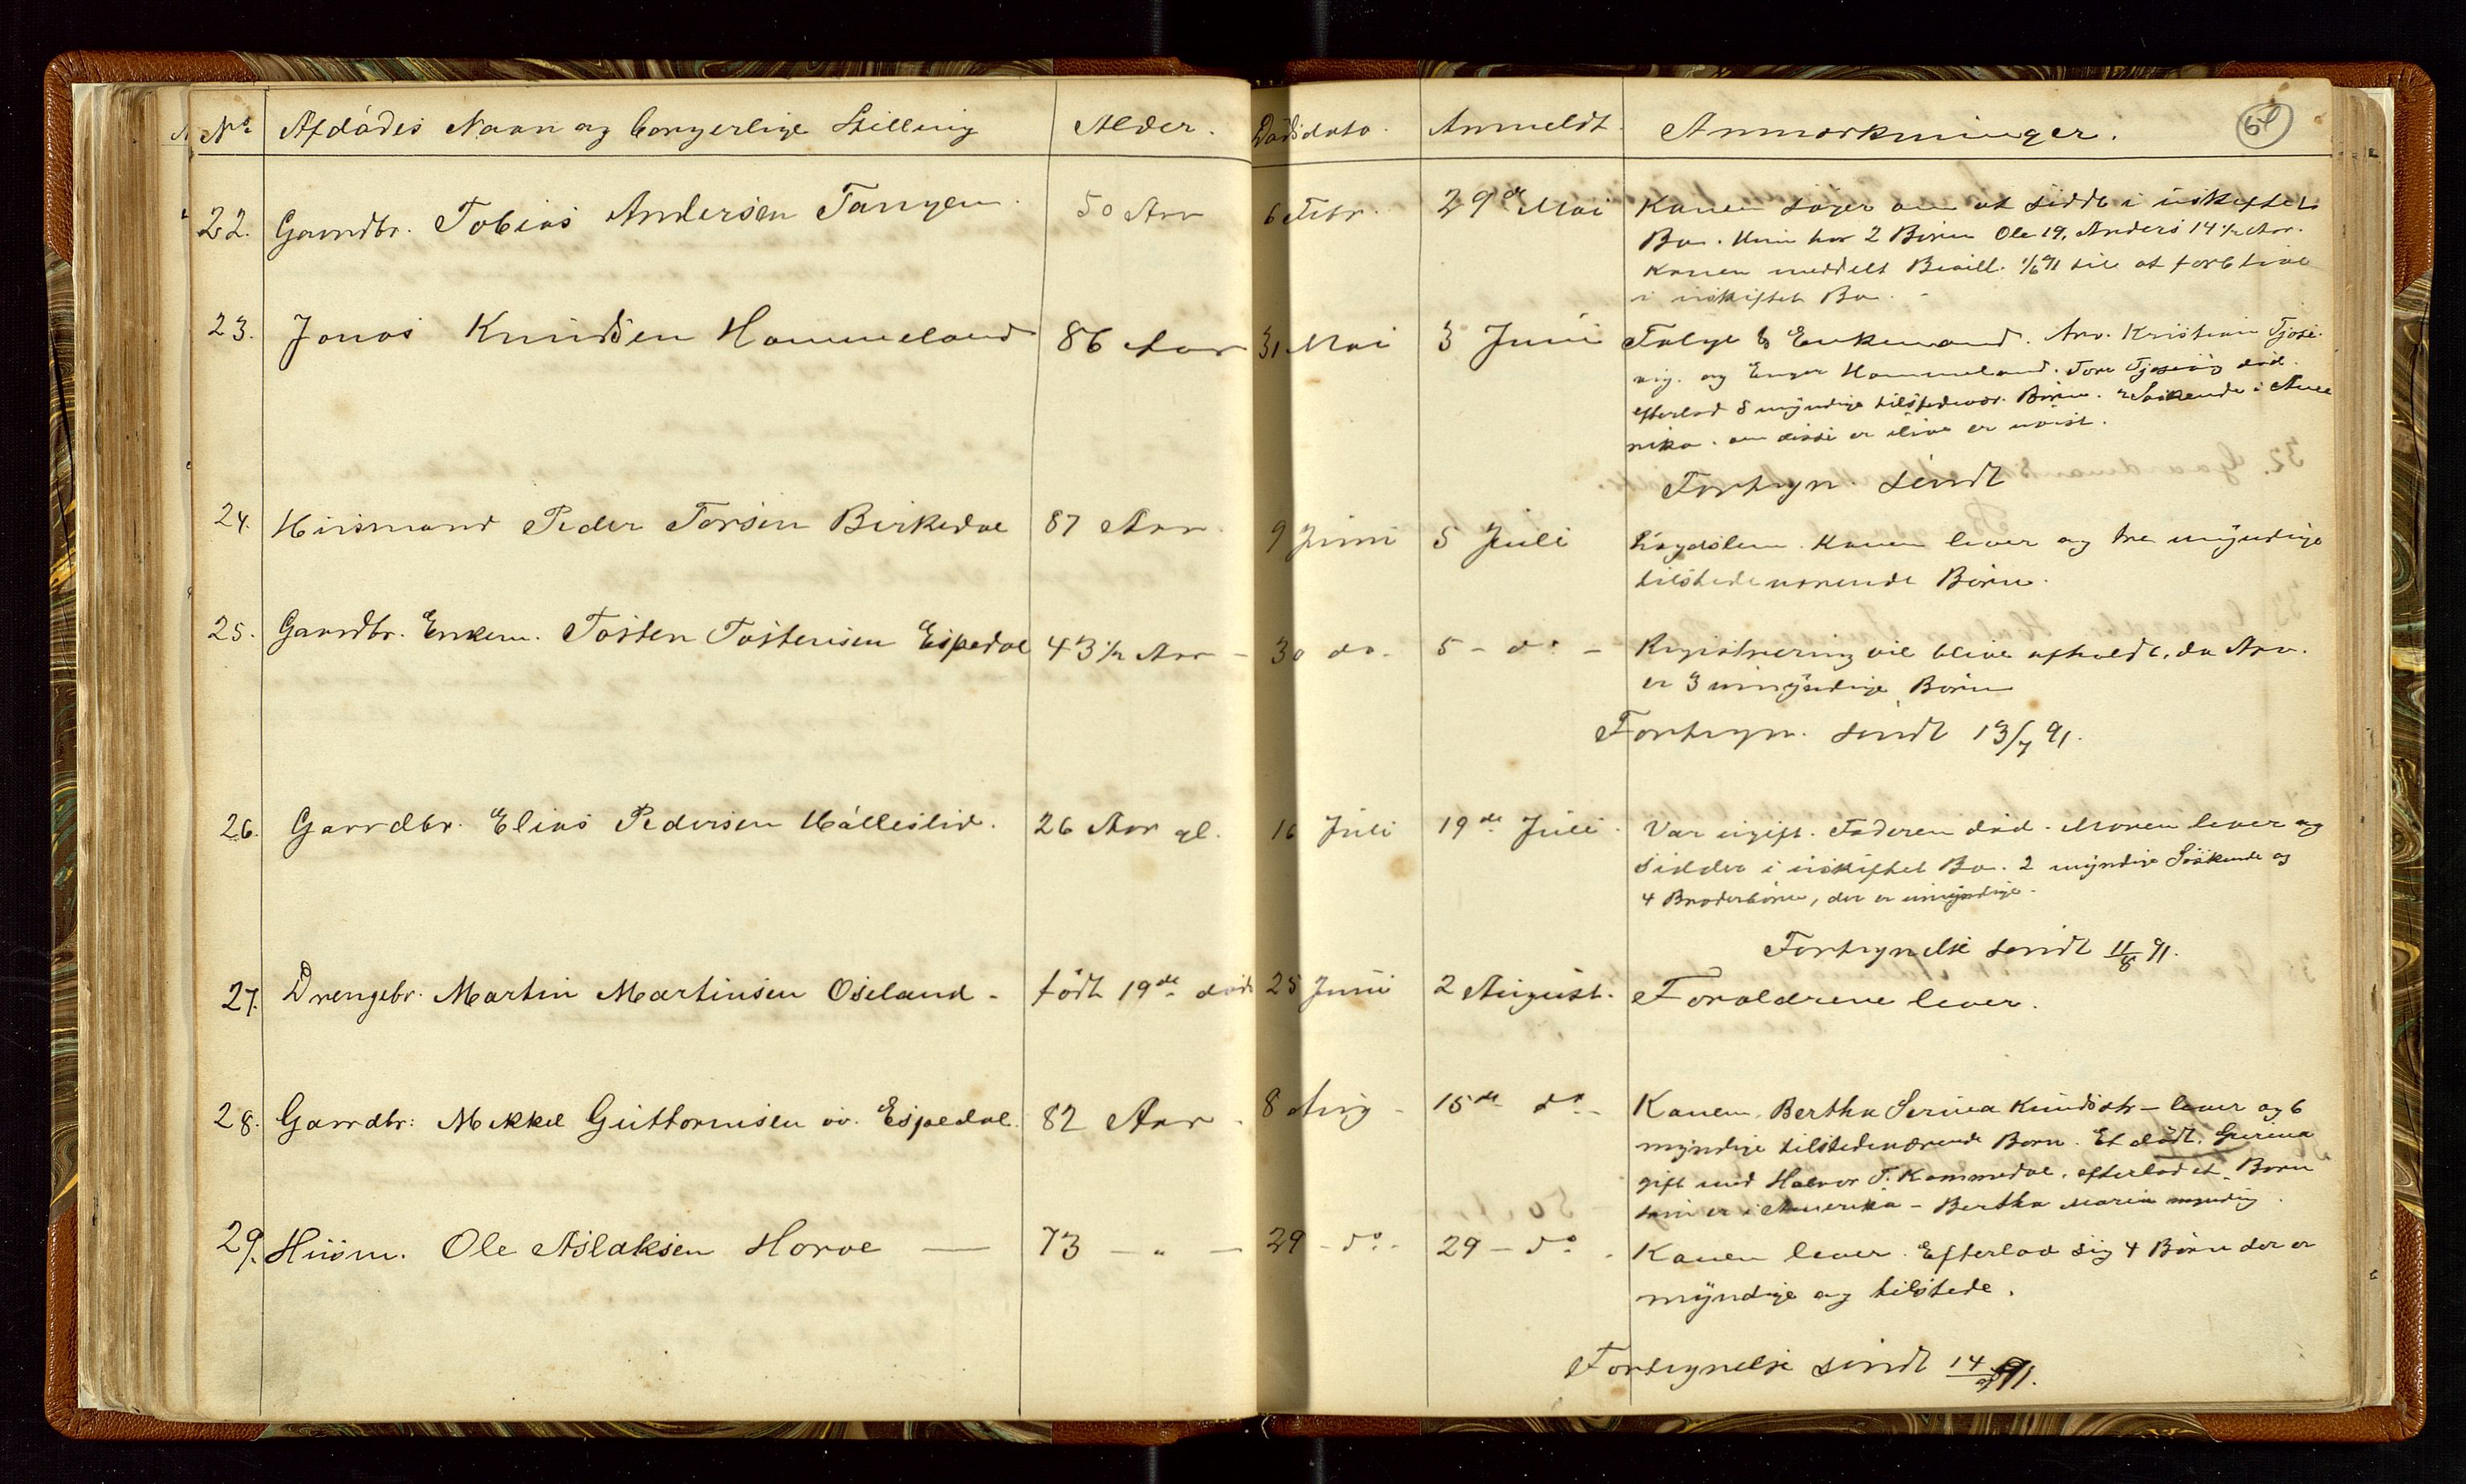 No. Afdødes Navn og borgerlige Stilling Alder. Dødsdato. Anmeldt. Anmærkninger. 61
22. Gaardbr. Tobias Andersen Tangen. 50 Aar 6 Febr. 29de Mai Konen søger om at sidde i uskiftet
Bo. Hun har 2 Børn Ole 19, Anders 14 1/2 Aar.
Konen meddelt Bevill. 1/6 91 til at forblive
i uskiftet Bo.
23. Jonas Knudsen Hommeland 86 Aar 31 Mai 3 Juni Enkemand. Arv. Kristian Tjøse-
vig. og Hommeland. Tore Tjøsevig død.
efterlod 8 myndige tilstedevær. Børn. 2 Søskende i Ame
rika. om disse er ilive er uvist.
Fortegn. sendt
24. Husmand Peder Torsen Birkedal 87 Aar 9 Juni 5 Juli Konen lever og tre myndige
tilstedeværende Børn.
25. Gaardbr. Enkem. Tosten Tostensen Espedal 43 1/2 Aar - 30 do. 5 - do - Registrering vil blive afholdt, da Arv.
er 3 umyndige Børn
Fortegn. sendt 13/7 91.
26. Gaardbr. Elias Pedersen Hålleslid. 26 Aar gl. 16 Juli 19de Juli. Var ugift. Faderen død. Moren lever og
sidder i uskiftet Bo. 2 myndige Søskende og
4 Broderbørn, der er umyndige.
Fortegnelse sendt 11/8 91.
27. Drengebr. Martin Martinsen Oseland - født 19de død 25 Juni 2 August. Forældrene lever.
28. Gaardbr: Mikkel Guttormsen øv. Espedal. 82 Aar 8 Aug - 15de do - Konen, Bertha Serina Knudsdtr - lever og 6
myndige tilstedeværende Børn. Et dødt, Gurina
gift med Halvor T. Kommedal, efterlod et Barn
som er i Amerika - Bertha Maria myndig.
29. Husm. Ole Aslaksen Horve — 73 - " - 29 - do - 29 - do. Konen lever. Efterlod sig 4 Børn der er
myndige og tilstede.
Fortegnelse sendt 14/9 91.